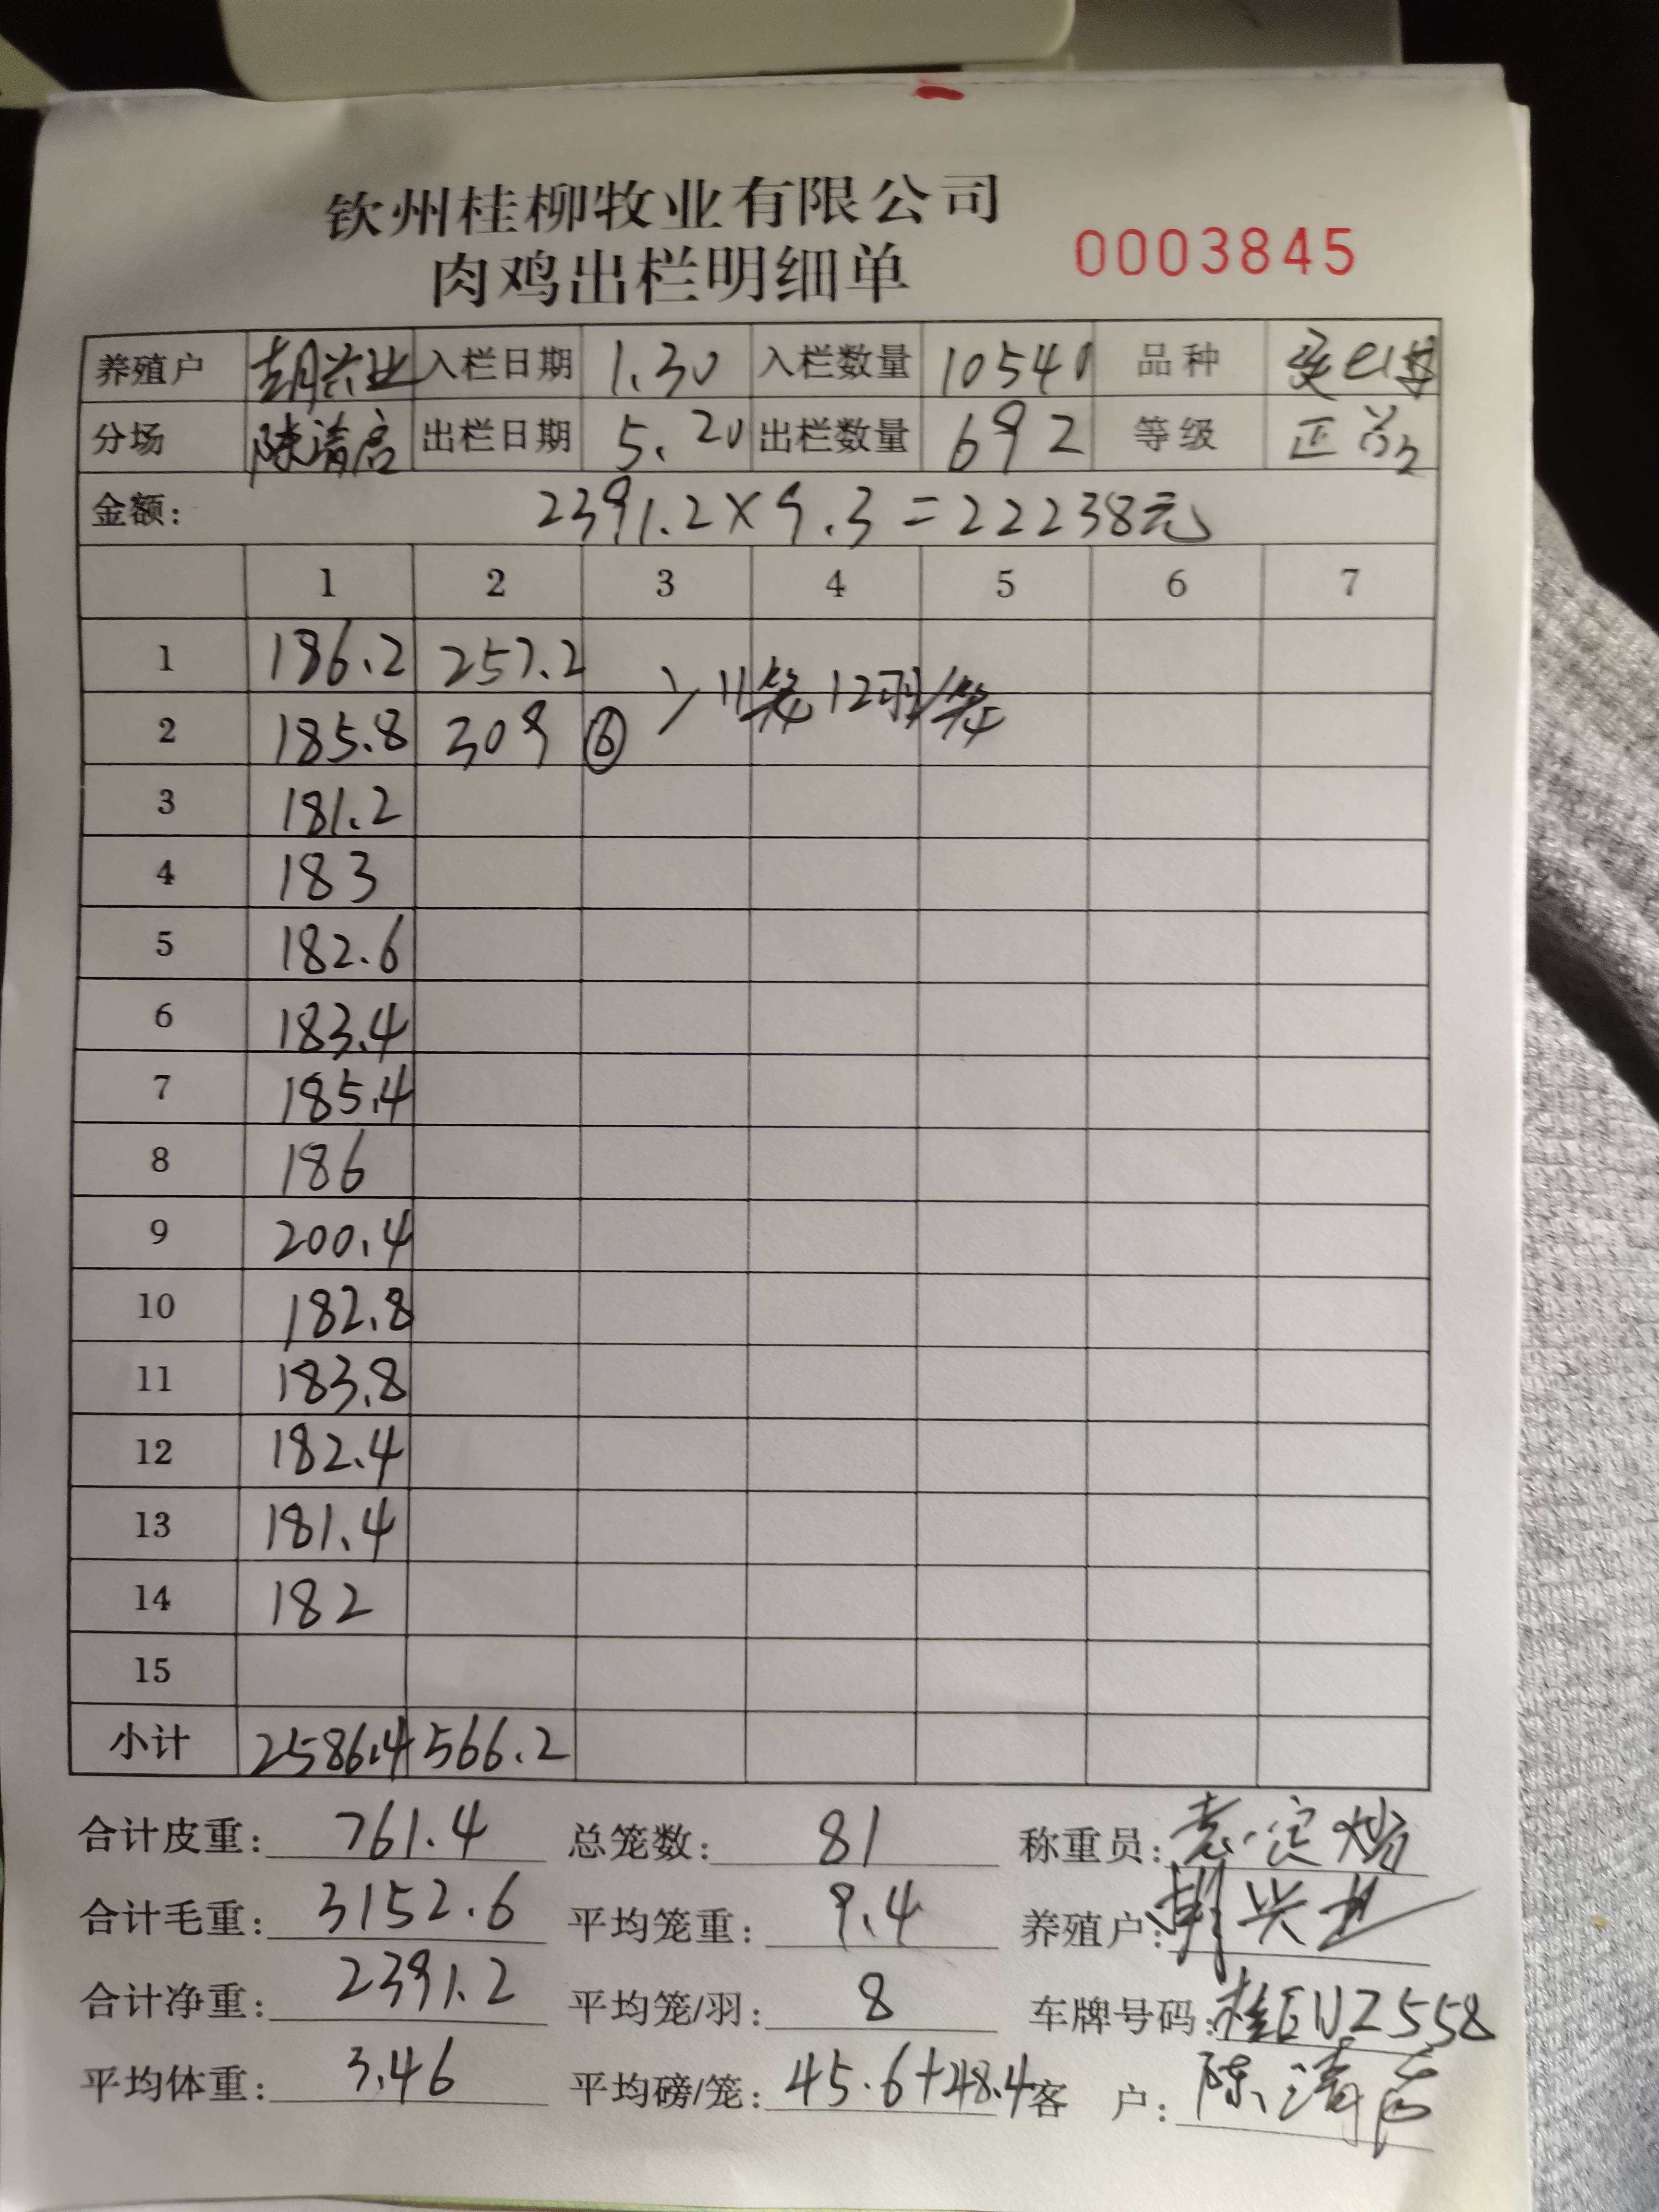 钦州桂柳牧业有限公司
肉鸡出栏明细单 0003845
养殖户 胡兴业 入栏日期 1.30 入栏数量 10540 品种
分场 陈清 出栏日期 5.20 出栏数量 692 等级 正
金额: 2391.2×9.3=22238元
1 2 3 4 5 6 7
1 186.2 257.2
2 185.8 309 ⑥ >11笼12羽/笼
3 181.2
4 183
5 182.6
6 183.4
7 185.4
8 186
9 200.4
10 182.8
11 183.8
12 182.4
13 181.4
14 182
15
小计 2586.4 566.2
合计皮重: 761.4 总笼数: 81 称重员:
合计毛重: 3152.6 平均笼重: 9.4 养殖户: 胡兴业
合计净重: 2391.2 平均笼/羽: 8 车牌号码: 桂ENZ558
平均体重: 3.46 平均磅/笼: 45.6+48.4 客 户: 陈清